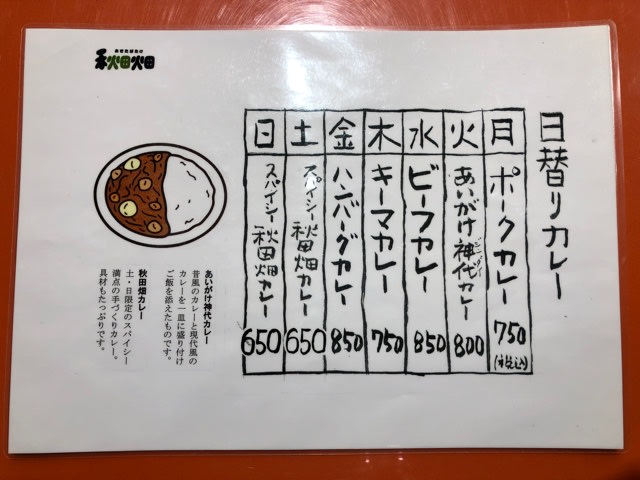 日替りカレー
月 ポークカレー 750 (税込)
火 あいがけ神代カレー 800
水 ビーフカレー 850
木 キーマカレー 750
金 ハンバーグカレー 850
土 スパイシー秋田畑カレー 650
日 スパイシー秋田畑カレー 650
秋田畑
あいがけ神代カレー
昔風のカレーと現代風の
カレーを一皿に盛り付け
ご飯を添えたものです。
秋田畑カレー
土・日限定のスパイシー
満点の手づくりカレー。
具材もたっぷりです。